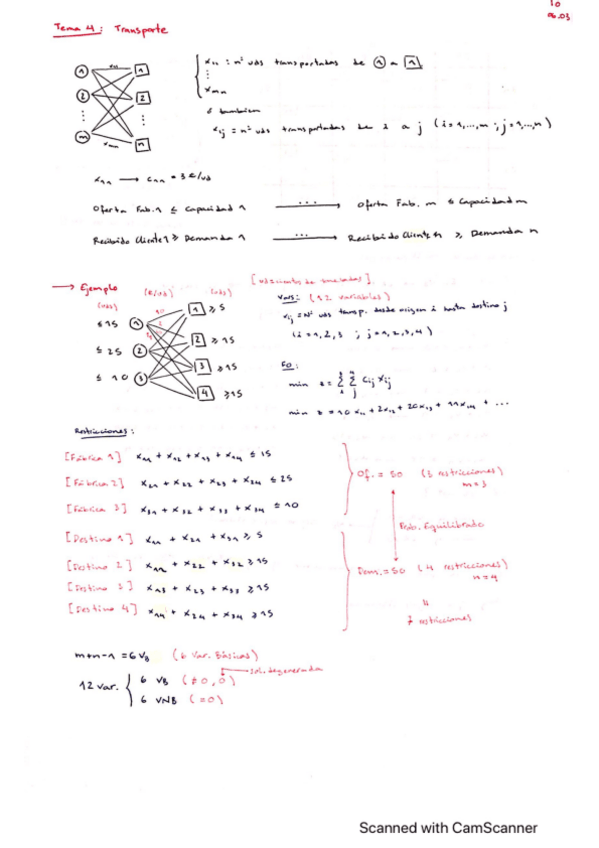 10
06.03
Tema 4: Transporte
x₁₁ : nº uds transportadas de ① a [1]
⋮
xₘₙ
ó también
xᵢⱼ = nº uds transportadas de i a j (i=1,...,m ; j=1,...,n)
1
2
⋮
m
x₁₁
xₘₙ
1
2
⋮
n
x₁₁ → c₁₁ = 3 €/ud
Oferta Fab. 1 ≤ Capacidad 1 ... Oferta Fab. m ≤ Capacidad m
Recibido Cliente 1 ≥ Demanda 1 ... Recibido Cliente n ≥ Demanda n
→ Ejemplo
(uds) (€/ud) (uds)
≤ 15 ① 10 [1] ≥ 5
≤ 25 ② [2] ≥ 15
≤ 10 ③ [3] ≥ 15
[4] ≥ 15
Vars: (12 variables)
xᵢⱼ = Nº uds transp. desde origen i hasta destino j
(i=1,2,3 ; j=1,2,3,4)
FO:
min z = Σ Σ cᵢⱼ xᵢⱼ
min z = 10 x₁₁ + 2x₁₂ + 20x₁₃ + 11x₁₄ + ...
Restricciones:
[Fábrica 1] x₁₁ + x₁₂ + x₁₃ + x₁₄ ≤ 15
[Fábrica 2] x₂₁ + x₂₂ + x₂₃ + x₂₄ ≤ 25
[Fábrica 3] x₃₁ + x₃₂ + x₃₃ + x₃₄ ≤ 10
Of. = 50 (3 restricciones)
m=3
Prob. Equilibrado
[Destino 1] x₁₁ + x₂₁ + x₃₁ ≥ 5
[Destino 2] x₁₂ + x₂₂ + x₃₂ ≥ 15
[Destino 3] x₁₃ + x₂₃ + x₃₃ ≥ 15
[Destino 4] x₁₄ + x₂₄ + x₃₄ ≥ 15
Dem. = 50 (4 restricciones)
n=4
7 restricciones
m+n-1 = 6 VB (6 Var. Básicas)
12 var. { 6 VB (≠0, 0) → Sol. degenerada
6 VNB (=0)
Scanned with CamScanner